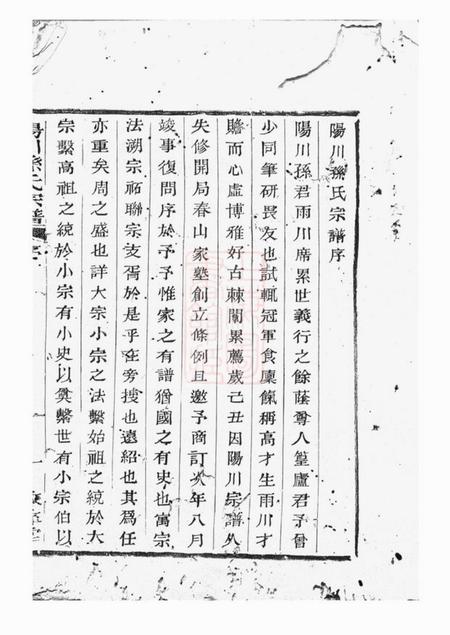 陽川孫氏宗譜序
陽川孫君雨川席累世義行之餘蔭尊人篁廬君予曾
少同筆研畏友也試輒冠軍食廩餼稱高才生雨川才
贍而心虛博雅好古棘闈累薦歲己丑因陽川宗譜久
失修開局春山家塾創立條例且邀予商訂次年八月
竣事復問序於予予惟家之有譜猶國之有史也寓宗
法溯宗祏聯宗支胥於是乎在旁搜也遠紹也其爲任
亦重矣周之盛也詳大宗小宗之法繫始祖之統於大
宗繫高祖之統於小宗有小史以奠繫世有小宗伯以
陽川孫氏宗譜